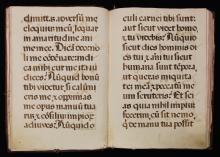 Dimittã adversũ me
eloquiũ meũ, loquar
in amaritudine ani
me mee. Dicã deo: noli
me cõdẽnare: indi
ca michi cur me ita iu
dices. Nũquid bonũ
tibi videtur, si calũni
eris me, & opprimas
me opus manuũ tua
rũ, & cõsiliũ impior
adiuves? Nũquid o
culi carnei tibi sunt:
aut sicut videt homo,
& tu videbis? Nũquid
sicut dies hominis di
es tui, & anni tui sic
ut humana sunt tẽpo
ra: ut queras iniquita
tẽ meã, & peccatũ me
um scruteris? Et sci
as quia nihil impiũ
fecerim, cũ sit nemo
q de manu tua possit